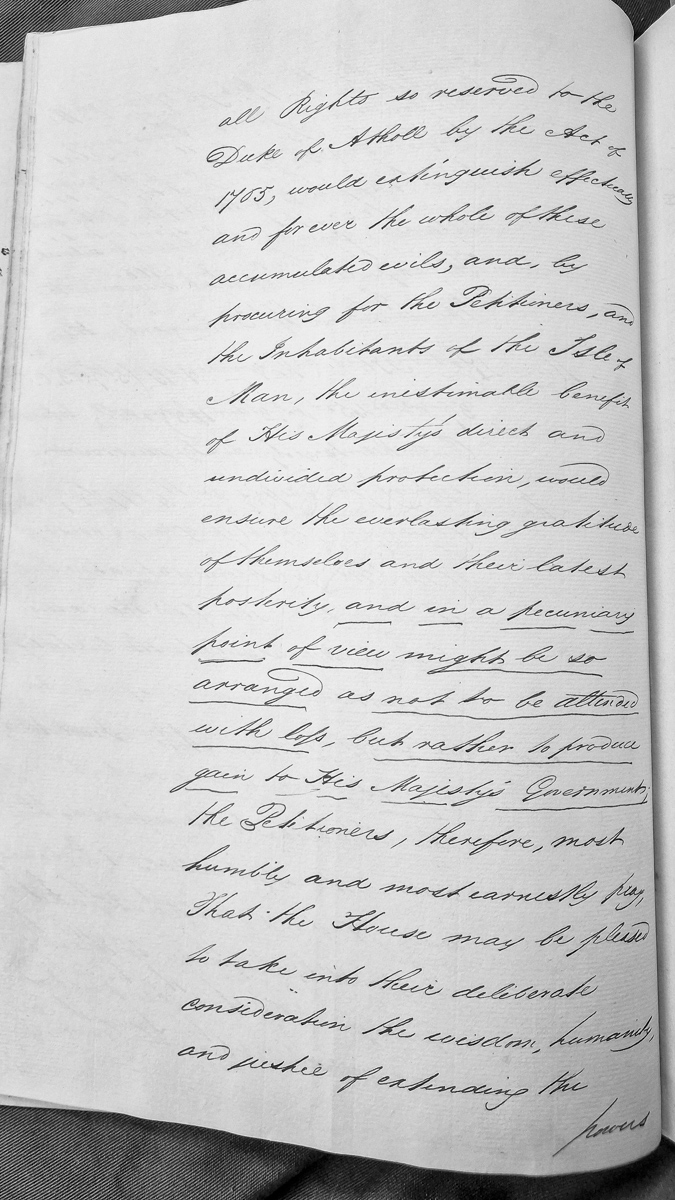 all Rights so reserved to the
Duke of Atholl by the Act of
1765, would extinguish effectually
and for ever the whole of these
accumulated evils, and, by
procuring for the Petitioners, and
the Inhabitants of the Isle of
Man, the inestimable benefit
of His Majesty's direct and
undivided protection, would
ensure the everlasting gratitude
of themselves and their latest
posterity, and in a pecuniary
point of view might be so
arranged as not to be attended
with loss, but rather to produce
gain to His Majesty's Government;
the Petitioners, therefore, most
humbly and most earnestly pray,
That the House may be pleased
to take into their deliberate
consideration the wisdom, humanity,
and justice of extending the
powers